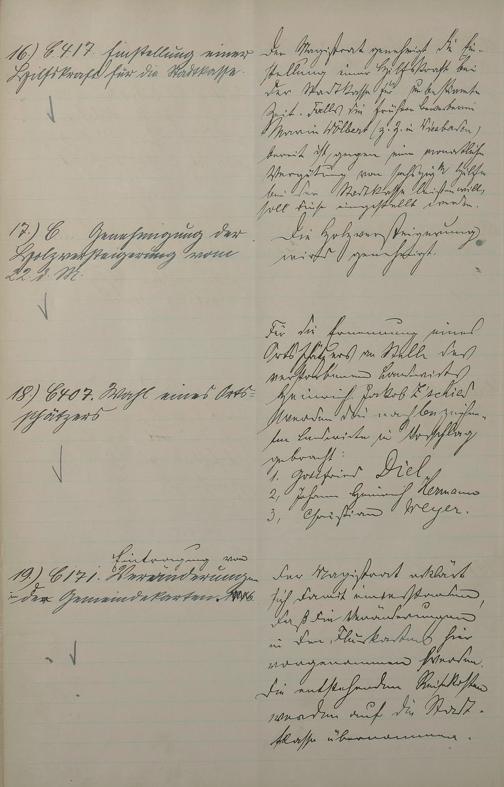 16.) C. 417. Einstellung einer
Hilfskraft für die Stadtkasse.
Der Magistrat genehmigt die Ein-
stellung einer Hilfskraft bei
der Stadtkasse für unbestimmte
Zeit. Falls die frühere
Maria Wölbert (z. Z. in Wiesbaden)
bereit ist, gegen eine monatliche
Vergütung von Hilfe
bei der Stadtkasse leisten will,
soll diese eingestellt werden.
17.) C Genehmigung der
Holzversteigerung vom
22. d. M.
Die Holzversteigerung
wird genehmigt.
18.) C 407. Wahl eines Orts-
schätzers
Für die Ernennung eines
Ortsschätzers an Stelle des
verstorbenen Landwirts
Heinrich Jakob
werden die nachbezeichne-
ten Landwirte in Vorschlag
gebracht:
1. Gottfried Diel,
2, Johann Heinrich Hermann
3, Christian Weyer.
19.) C 171. Eintragung von
Veränderungen
in der Gemeindekarten.
Der Magistrat erklärt
sich damit einverstanden,
daß die Veränderungen
in den Flurkarten hier
vorgenommen werden.
Die entstehenden Reisekosten
werden auf die Stadt-
kasse übernommen.